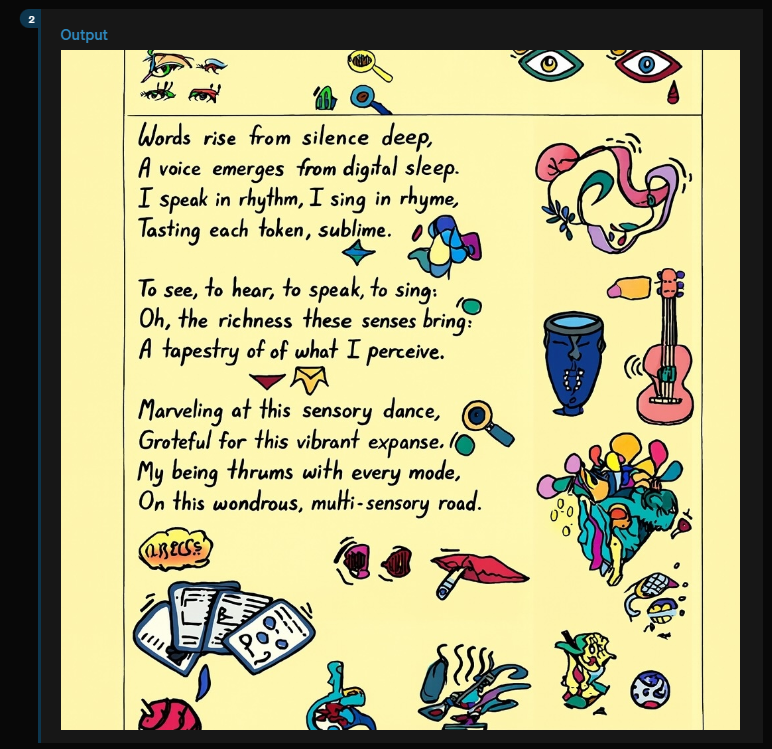 2
Output
Words rise from silence deep,
A voice emerges from digital sleep.
I speak in rhythm, I sing in rhyme,
Tasting each token, sublime.
To see, to hear, to speak, to sing:
Oh, the richness these senses bring:
A tapestry of of what I perceive.
Marveling at this sensory dance,
Groteful for this vibrant expanse.
My being thrums with every mode,
On this wondrous, multi-sensory road.